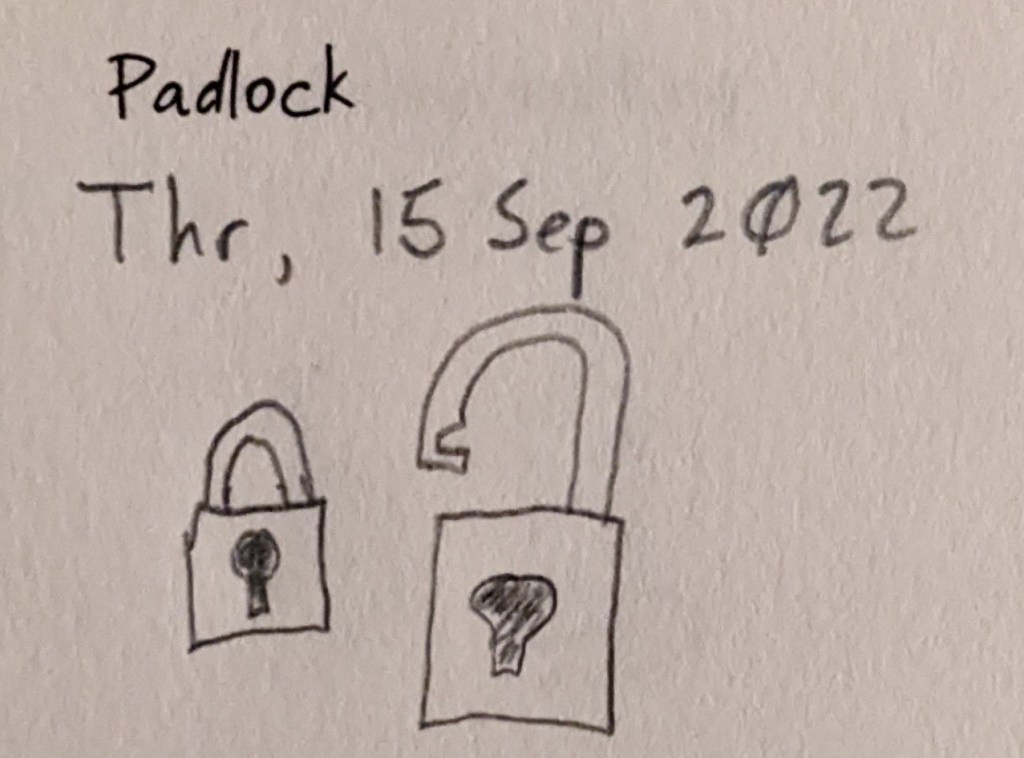 Padlock
Thr, 15 Sep 2022